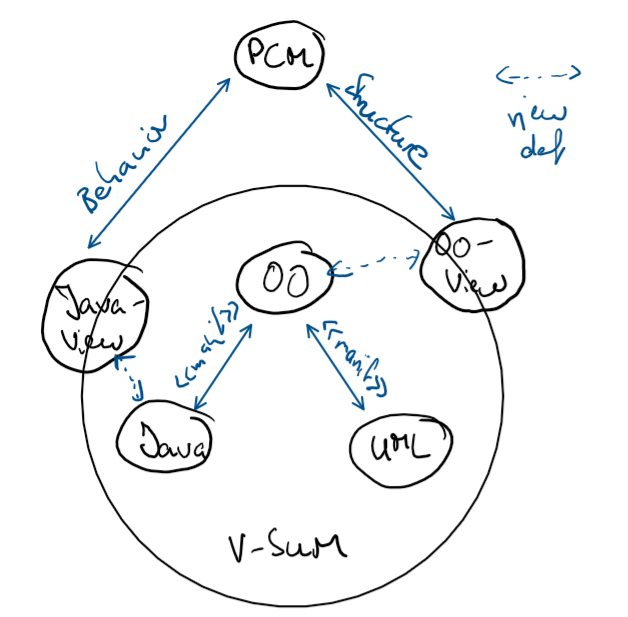 PCM
Behavior
Structure
view
def
OO
OO-
View
Java-
View
<<manif>>
<<manif>>
Java
UML
V-SUM